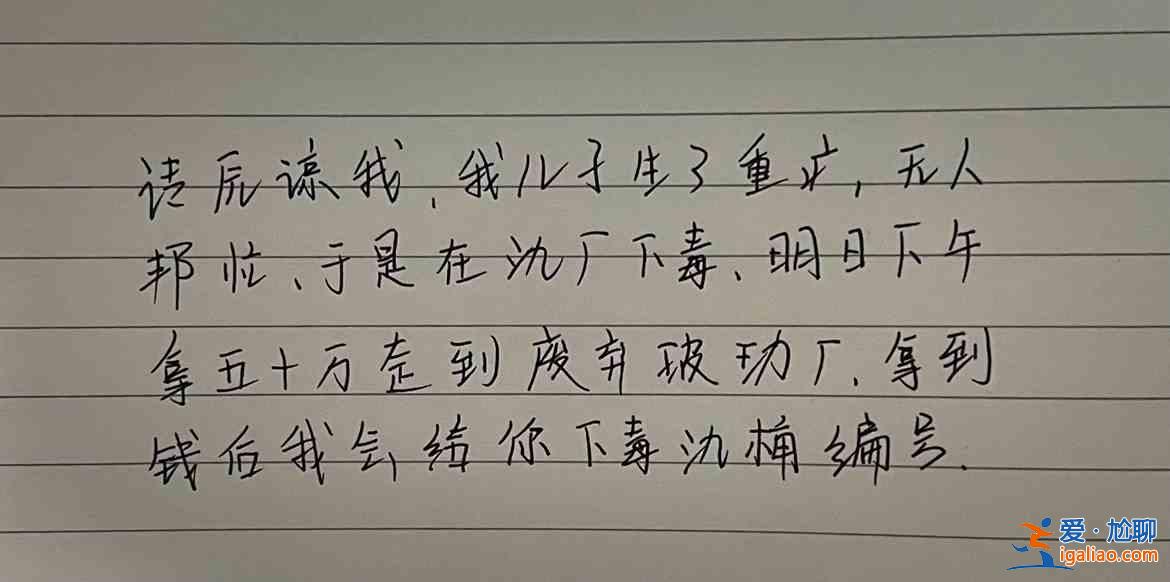 请原谅我,我儿子生了重症,无人
帮忙、于是在氿厂下毒、明日下午
拿五十万走到废弃玻功厂、拿到
钱后我会给你下毒氿桶编号.
爱·尬聊
igaliao.com